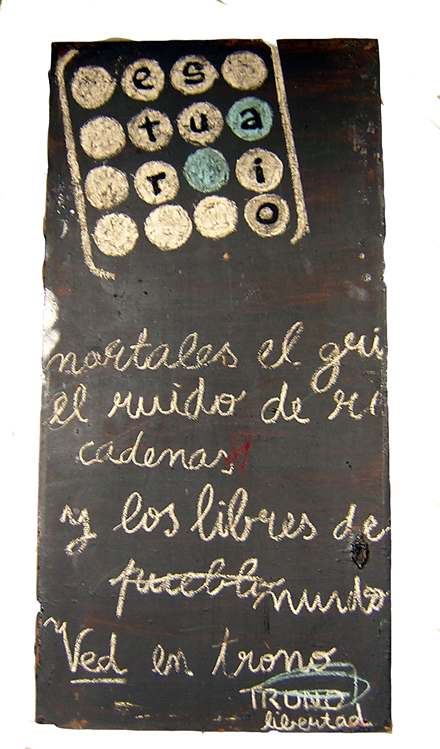 es
tua
r i
o
mortales el gri
el ruido de r
cadenas
y los libres de
pueblo mundo
Ved en trono
TRONO
libertad